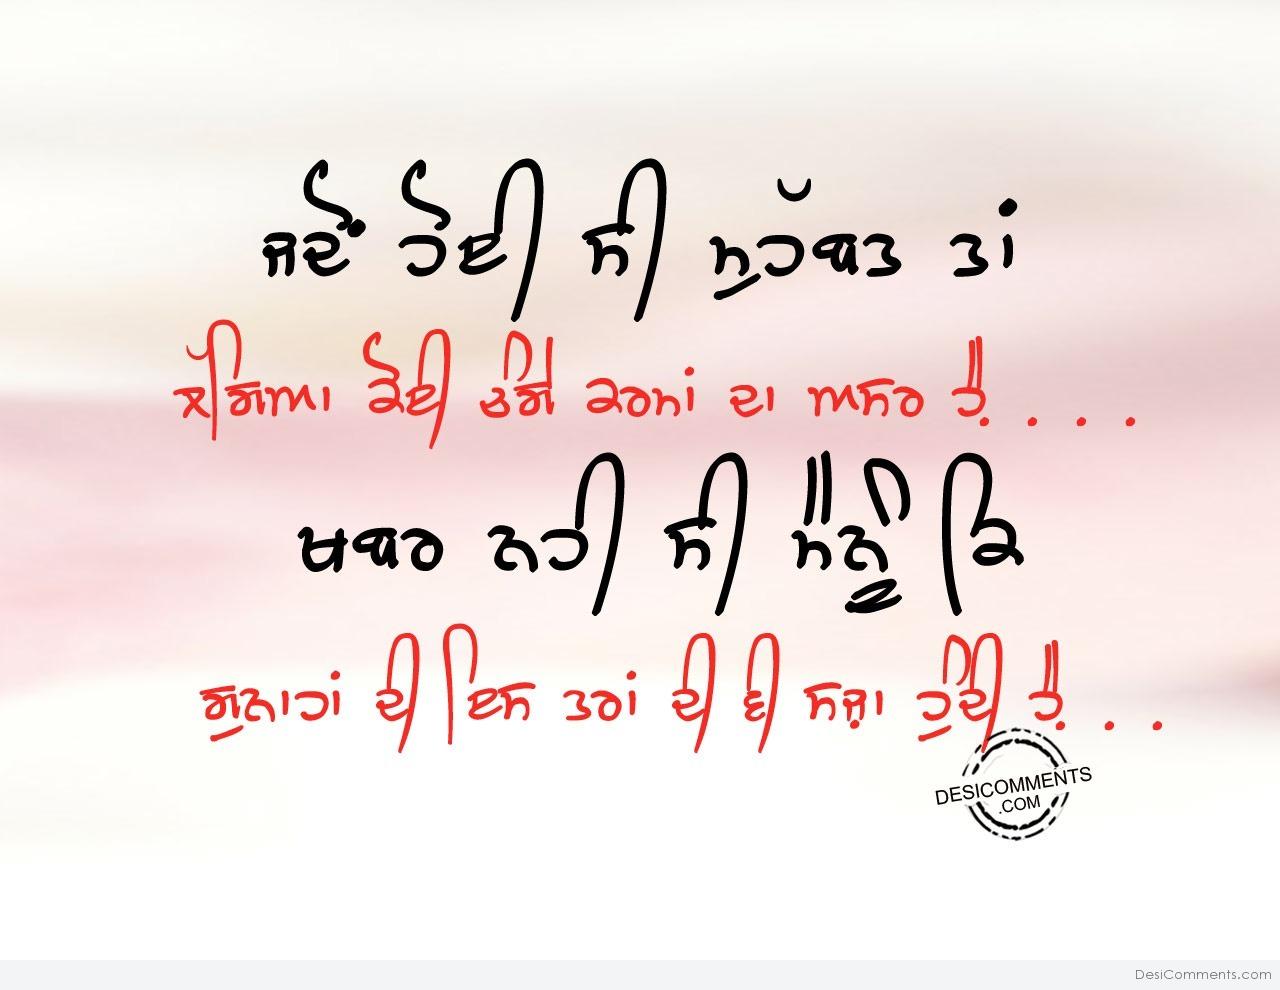 ਜਦੋਂ ਹੋਈ ਸੀ ਮੁਹੱਬਤ ਤਾਂ
ਲੱਗਿਆ ਕੋਈ ਚੰਗੇ ਕਰਮਾਂ ਦਾ ਅਸਰ ਹੈ....
ਖਬਰ ਨਹੀ ਸੀ ਮੈਨੂੰ ਕਿ
ਗੁਨਾਹਾਂ ਦੀ ਇਸ ਤਰਾਂ ਦੀ ਵੀ ਸਜ਼ਾ ਹੁੰਦੀ ਹੈ...
DESICOMMENTS
.COM
DesiComments.com